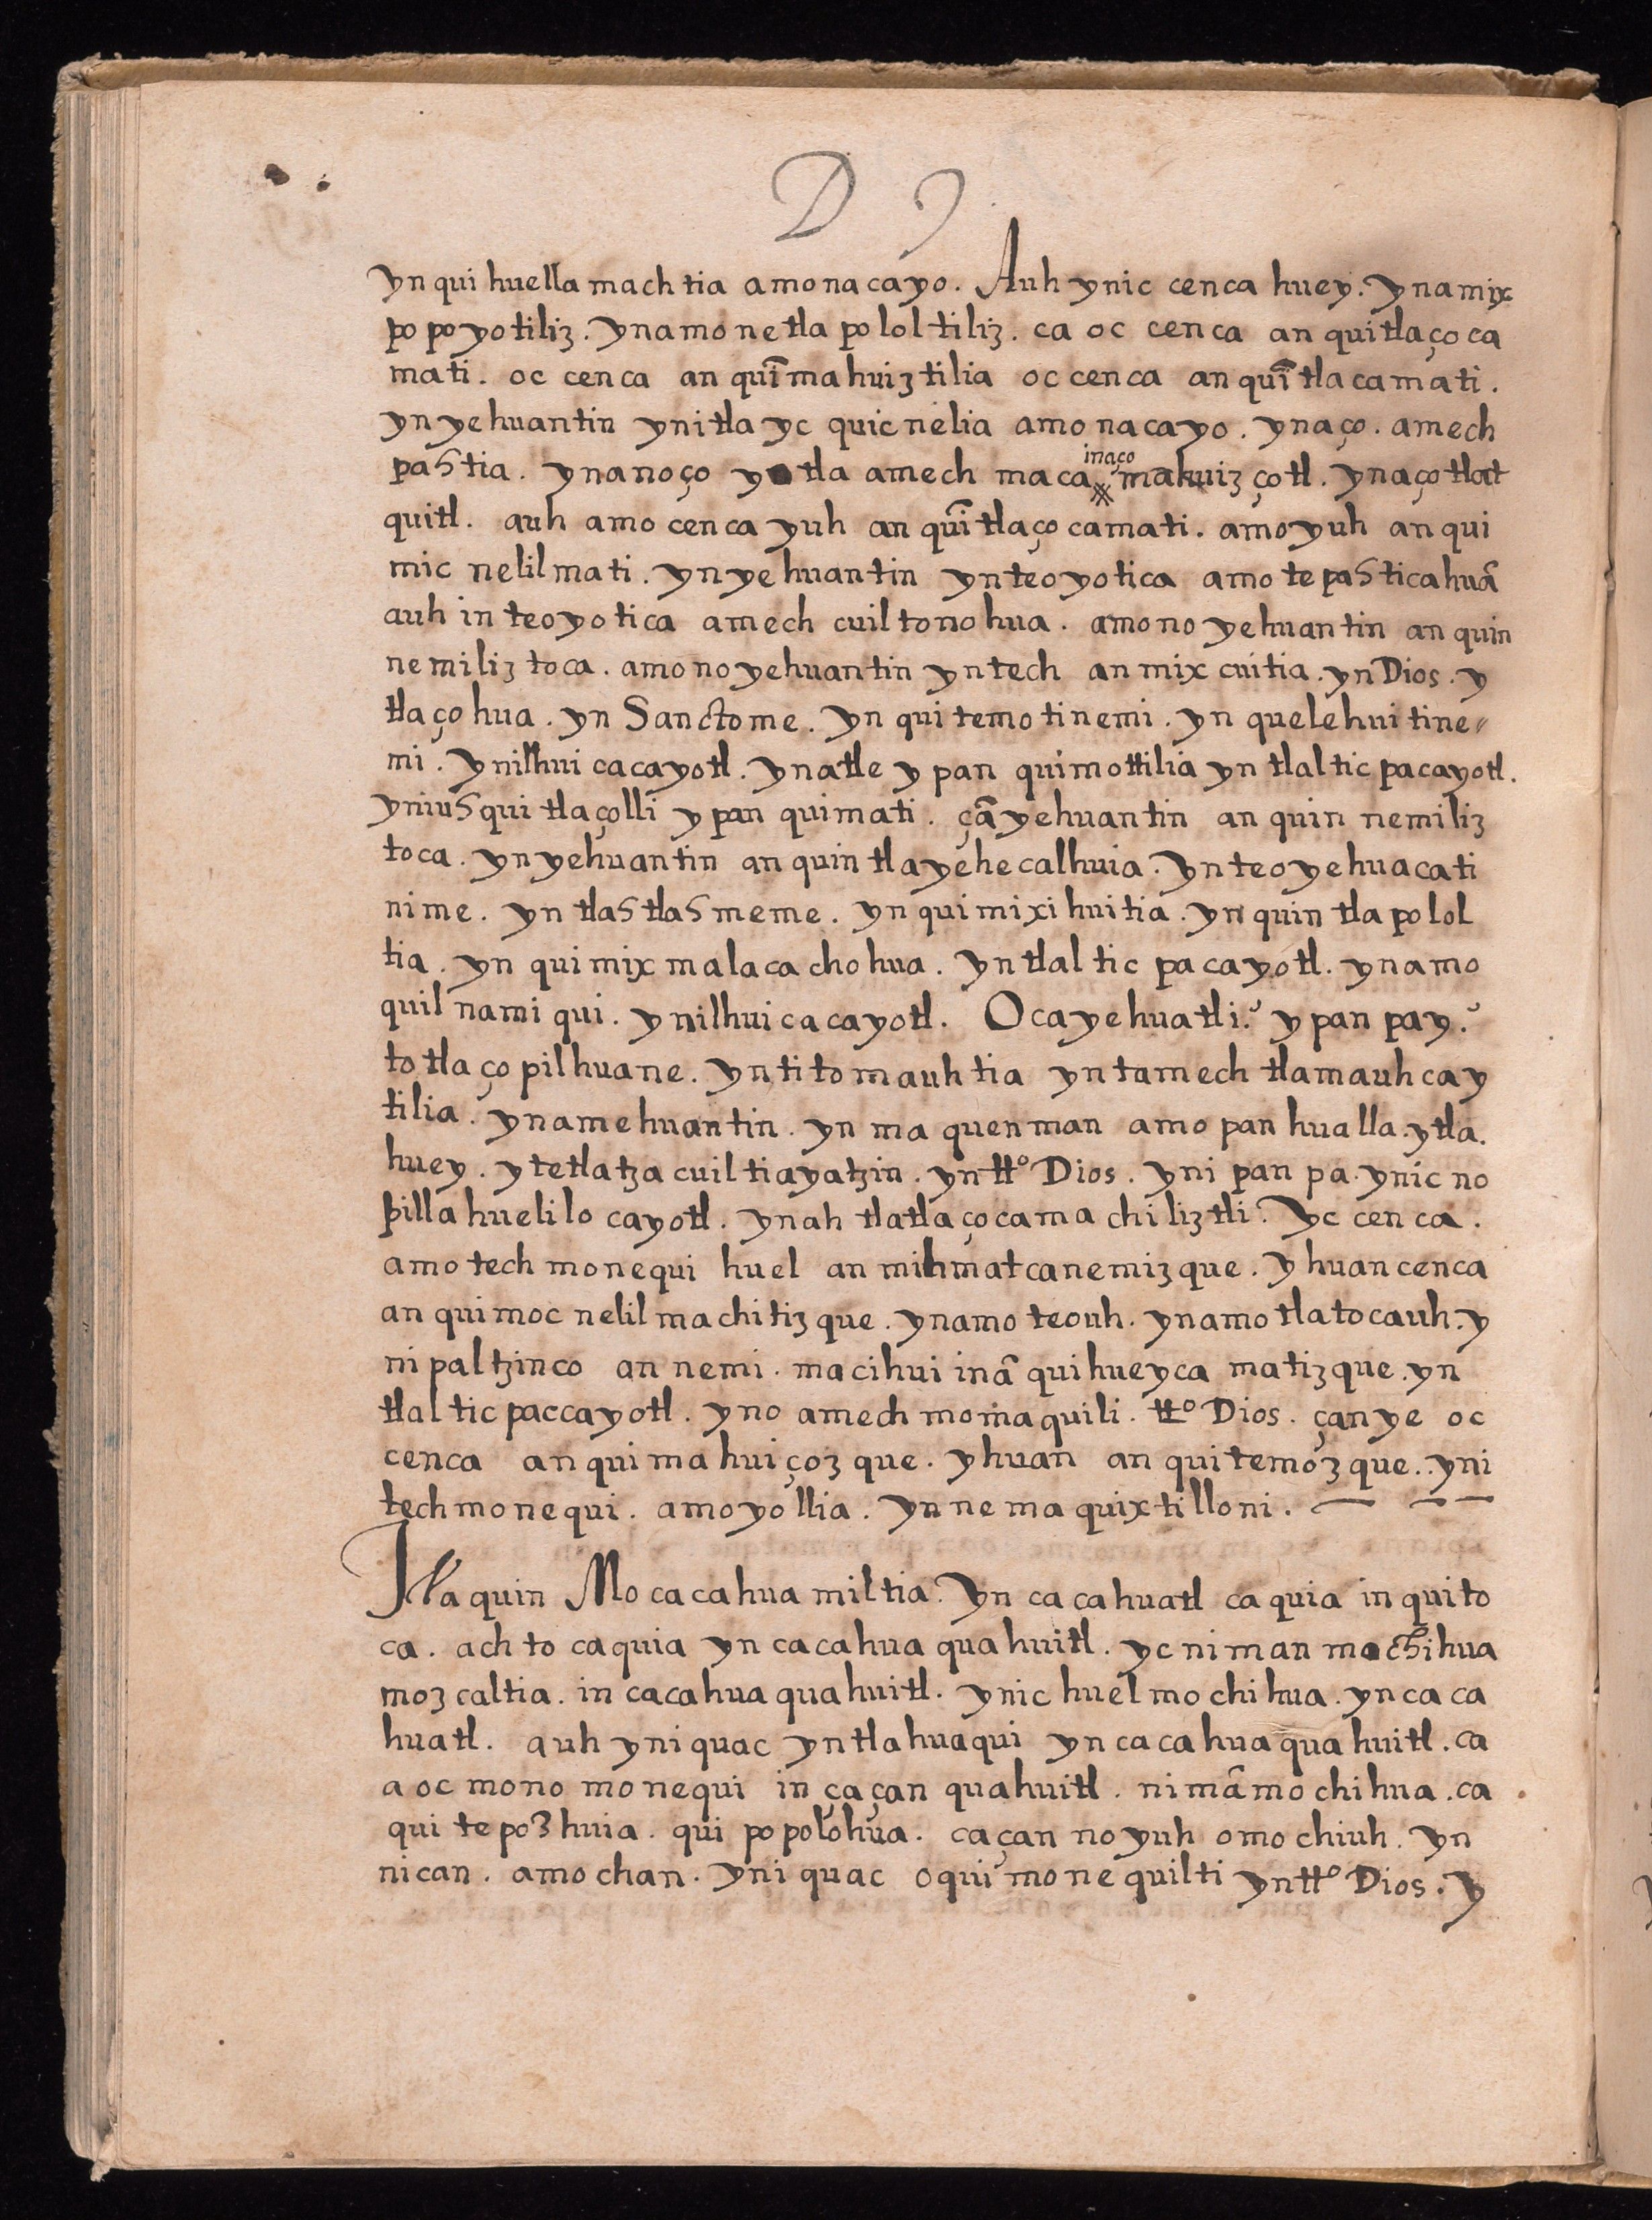 D 9
yn qui huella mach tia amo nacayo. Auh ynic cenca huey. ynamix
po poyotiliz. ynamo netla po lol tiliz. ca oc cen ca an quitlaçoca
mati. oc cen ca an quĩ mahuiztilia oc cenca an quĩ tlacamati.
yn yehuantin ynitla yc quicnelia amo nacayo. ynaço. amech
pastia. ynanoço ytla amech maca inaço mahuizçotl. ynaço tlat
quitl. auh amo cenca yuh an quĩ tlaço camati. amo yuh an qui
mic nelilmati. yn yehuantin yn teoyotica amo te pasticahuã
auh in teoyotica amech cuiltonohua. amo no yehuantin an quin
nemiliz toca. amo no yehuantin yn tech an mix cuitia. yn Dios. y
tlaçohua. yn Sanctome. yn qui temo tinemi. yn quelehui tine
mi. ynilhui cacayotl. ynatle y pan quimottilia yn tlaltic pacayotl.
ynius qui tlaçolli y pan quimati. çã yehuantin an quin nemiliz
toca. yn yehuantin an quin tlayehecalhuia. yn teoyehuacati
nime. yn tlastlasmeme. yn quimixihuitia. yn quin tlapolol
tia. yn quimix malaca chohua. yn tlal tic pacayotl. ynamo
quil nami qui. ynilhuicacayotl. Ocayehuatli. y pan pay.
totlaço pilhuane. yn titomauhtia yn tamech tlamauhcay
tilia. ynamehuantin. yn ma quenman amo pan hualla. ytla.
huey. ytetlatzacuiltiayatzin. yn tto Dios. yni pan pa. ynic no
pillahuelilocayotl. ynah tlatlaçocamachiliztli. yc cen ca.
amo tech monequi huel an mihmatcanemizque. yhuan cenca
an quimoc nelilmachitizque. ynamo teouh. ynamo tlatocauh. y
nipaltzinco an nemi. macihui inã quihueyca matizque. yn
tlaltic paccayotl. yno amech momaquili. tto Dios. çan ye oc
cenca an quimahuiçozque. yhuan an quitemozque. yni
tech monequi. amoyollia. yn nemaquixtilloni.
Ytla quin Mo cacahua miltia. yn cacahuatl ca quia in quito
ca. achto caquia yn cacahuaquahuitl. yc niman mochihua
mozcaltia. in cacahuaquahuitl. ynic huel mochihua. yn caca
huatl. auh yniquac yntlahuaqui yn cacahuaquahuitl. ca
aoc mono monequi in çaçan quahuitl. nimã mochihua. ca
qui tepozhuia. qui popolohua. caçan noyuh omochiuh. yn
nican. amochan. yniquac oquimonequilti yn tto Dios. y